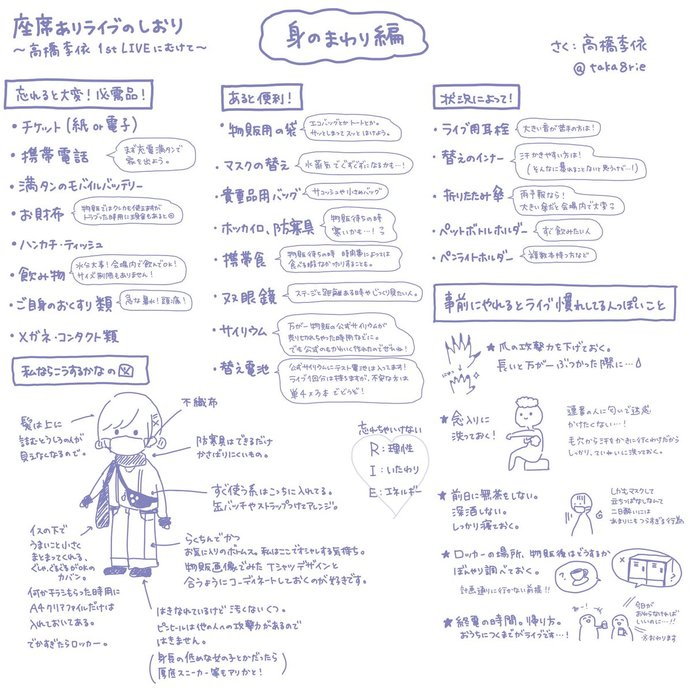 座席ありライブのしおり
〜高橋李依 1st LIVEにむけて〜
身のまわり編
さく：高橋李依
@taka8rie
忘れると大変！必需品！
・チケット(紙or電子)
・携帯電話
まず充電満タンで
家を出よう。
・満タンのモバイルバッテリー
・お財布
物販ではクレカも使えますが
トラブった時用に現金もあると◎
・ハンカチ・ティッシュ
・飲み物
水分大事！会場内で飲んでOK！
サイズ制限もありません！
・ご自身のおくすり類
急な暴れ！頭痛！
・メガネ・コンタクト類
あると便利！
・物販用の袋
エコバッグとかトートとか。
サッとしまってスッとはけよう。
・マスクの替え
水蒸気でぐずぐずになるかも…！
・貴重品用バッグ
サコッシュや小さめバッグ
・ホッカイロ、防寒具
物販待ちの時
寒いかも…！
・携帯食
物販待ちの時 時間帯によっては
食べる暇なかったりすることも。
・双眼鏡
ステージと距離ある時やじっくり見たい人。
・サイリウム
万が一物販の公式サイリウムが
売りきれちゃった時用などに。
でも公式のもかわいく作れたのでぜひね！
・替え電池
公式サイリウムにテスト電池は入ってます！
ライブ1回分は持ちますが、不安な方は
単4×3本でどうぞ！
状況によって！
・ライブ用耳栓
大きい音が苦手の方は！
・替えのインナー
汗かきやすい方は！
(そんなに暴れることないと思うけど…！)
・折りたたみ傘
雨予報なら！
大きい傘だと会場内で大変
・ペットボトルホルダー
すぐ飲みたい人
・ペンライトホルダー
複数本持つ方など
事前にやれるとライブ慣れしてる人っぽいこと
★爪の攻撃力を下げておく。
長いと万が一ぶつかった際に…
★念入りに
洗っておく！
連番の人に匂いで迷惑
かけたくない…！
毛穴から汗をかきに行くわけだから
しっかり、ていねいに洗っておく。
★前日に無茶をしない。
深酒しない。
しっかり寝ておく。
しかもマスクして
立ちっぱなしなんて
二日酔いには
あまりにもつらすぎる行為
★ロッカーの場所、物販後はどうするか
ぼんやり調べておく。
計画通りに行かない前提！！
★終演の時間。帰り方。
おうちにつくまでがライブです…！
今日が
おわらなければ
いいのに…!!
※おわります
私ならこうするかなの図
髪は上に
詰むとうしろの人が
見えなくなるので。
不織布
防寒具はできるだけ
かさばりにくいもの。
すぐ使う系はこっちに入れてる。
缶バッチやストラップつけてアレンジ。
イスの下で
うまいこと小さく
まとまってくれる、
ぐしゃ、どもどもがOKの
カバン。
らくちんでかつ
お気に入りのボトムス。私はここでオシャレする気持ち。
物販画像でみた Tシャツデザインと
合うようにコーディネートしておくのが好きです。
何かチラシもらった時用に
A4クリアファイルだけは
入れておいてある。
でかすぎたらロッカー。
はきなれているけど汚くないくつ。
ピンヒールは他の人への攻撃力があるので
はきません。
(身長の低めな女の子とかだったら
厚底スニーカー等もアリかと！)
忘れちゃいけない
R：理性
I：いたわり
E：エネルギー